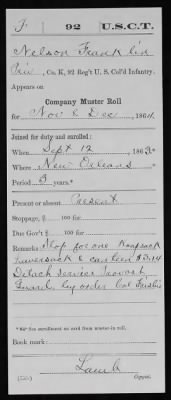 F. 92 U.S.C.T.
Nelson Franklin
Priv, Co. K, 92 Reg't U. S. Col'd Infantry.
Appears on
Company Muster Roll
for Nov & Dec, 1864.
Joined for duty and enrolled:
When Sept 12, 1863.*
Where New Orleans
Period 3 years.*
Present or absent Present
Stoppage, $ 100 for
Due Gov't $ 100 for
Remarks: Stop for one Knapsack
Haversack & canteen $3.14
Detach service Provost
Guard by order Col Frisbie
*See enrollment on card from muster-in roll.
Book mark:
Lamb
(358) Copyist.